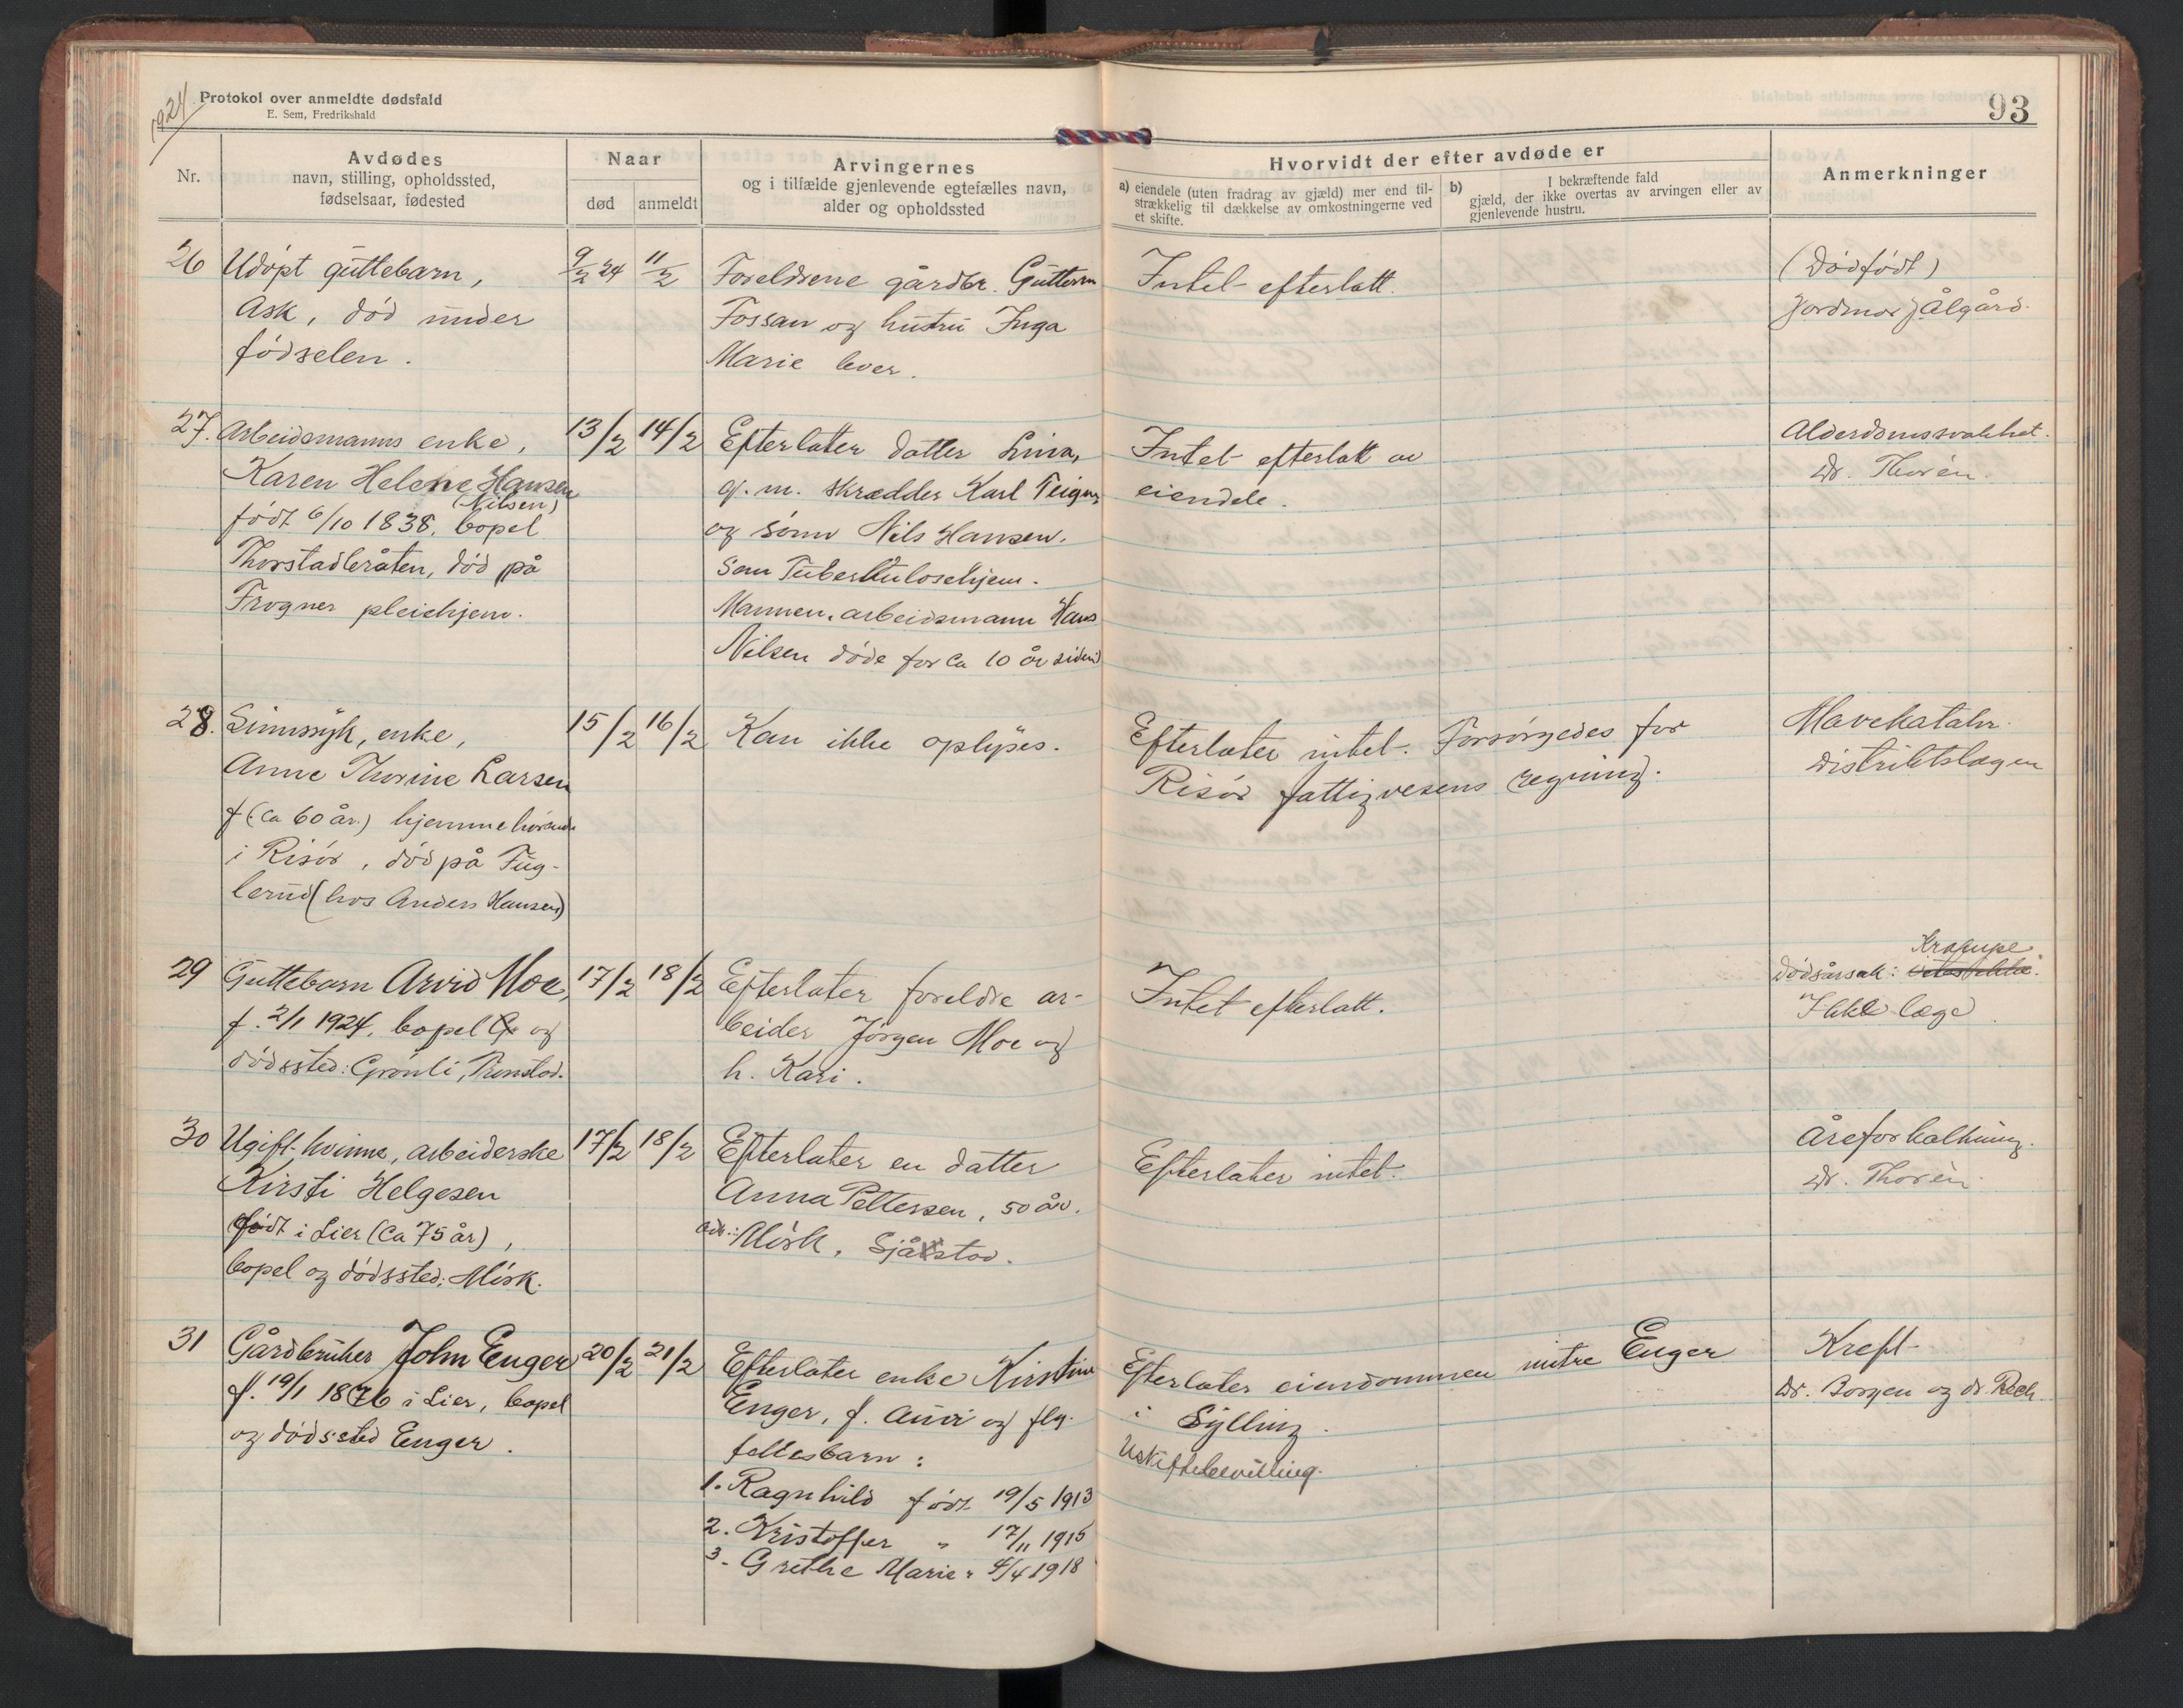 1924
Protokol over anmeldte dødsfald
E. Sem, Fredrikshald
93
Nr.
Avdødes
navn, stilling, opholdssted,
fødselsaar, fødested
Naar
død
anmeldt
Arvingernes
og i tilfælde gjenlevende egtefælles navn,
alder og opholdssted
Hvorvidt der efter avdøde er
a) eiendele (uten fradrag av gjæld) mer end til-
strækkelig til dækkelse av omkostningerne ved
et skifte.
b) I bekræftende fald
gjæld, der ikke overtas av arvingen eller av
gjenlevende hustru.
Anmerkninger
26
Udöpt guttebarn,
Ask, död under
födselen.
9/2 24
11/2
Foreldrene gårdbr. Guttorm
Fossan og hustru Inga
Marie lever.
Intet efterlatt.
(Dödfödt)
Jordmor Ålgård.
27.
Arbeidsmanns enke,
Karen Helene Hansen
(Nilsen)
född 6/10 1838, bopel
Thorstadleråten, död på
Frogner pleiehjem.
13/2
14/2
Efterlater datter Lina,
g. m. skrædder Karl Teigen
og sönn Nils Hansen.
Sem Tuberkulosehjem.
Mannen, arbeidsmann Hans
Nilsen döde for ca 10 år siden
Intet efterlatt av
eiendele.
Alderdomssvakhet.
Dr. Thorèn.
28.
Sinnssyk, enke,
Anne Thorine Larsen
f (ca 60 år.) hjemmehörende
i Risör, död på Fug-
lerud (hos Anders Hansen)
15/2
16/2
Kan ikke oplyses.
Efterlater intet. Forsörgedes for
Risör fattigvesens regning.
Mavekatahr.
distriktslægen
29
Guttebarn Arvid Moe,
f. 2/1 1924, bopel og
dödssted: Grönli, Tronstad.
17/2
18/2
Efterlater foreldre ar-
beider Jörgen Moe og
h. Kari.
Intet efterlatt.
Krampe
Dödsårsak:
Ikke læge
30
Ugift kvinne, arbeiderske
Kirsti Helgesen
född i Lier (ca 75 år),
bopel og dödssted: Mörk.
17/2
18/2
Efterlater en datter
Anna Pettersen, 50 år.
adr.: Mörk, Sjåstad.
Efterlater intet.
Åreforkalkning.
Dr. Thorèn.
31
Gårdbruker John Enger
f. 19/1 1876 i Lier, bopel
og dödssted Enger.
20/2
21/2
Efterlater enke Kirstine
Enger, f. Auvi og flg.
fellesbarn:
1. Ragnhild född 19/5 1913
2. Kristoffer " 17/11 1915
3. Grethe Marie " 4/4 1918
Efterlater eiendommen nitre Enger
i Sylling.
Uskiftebevilling.
Kreft
Dr. Borgen og dr. Reck.